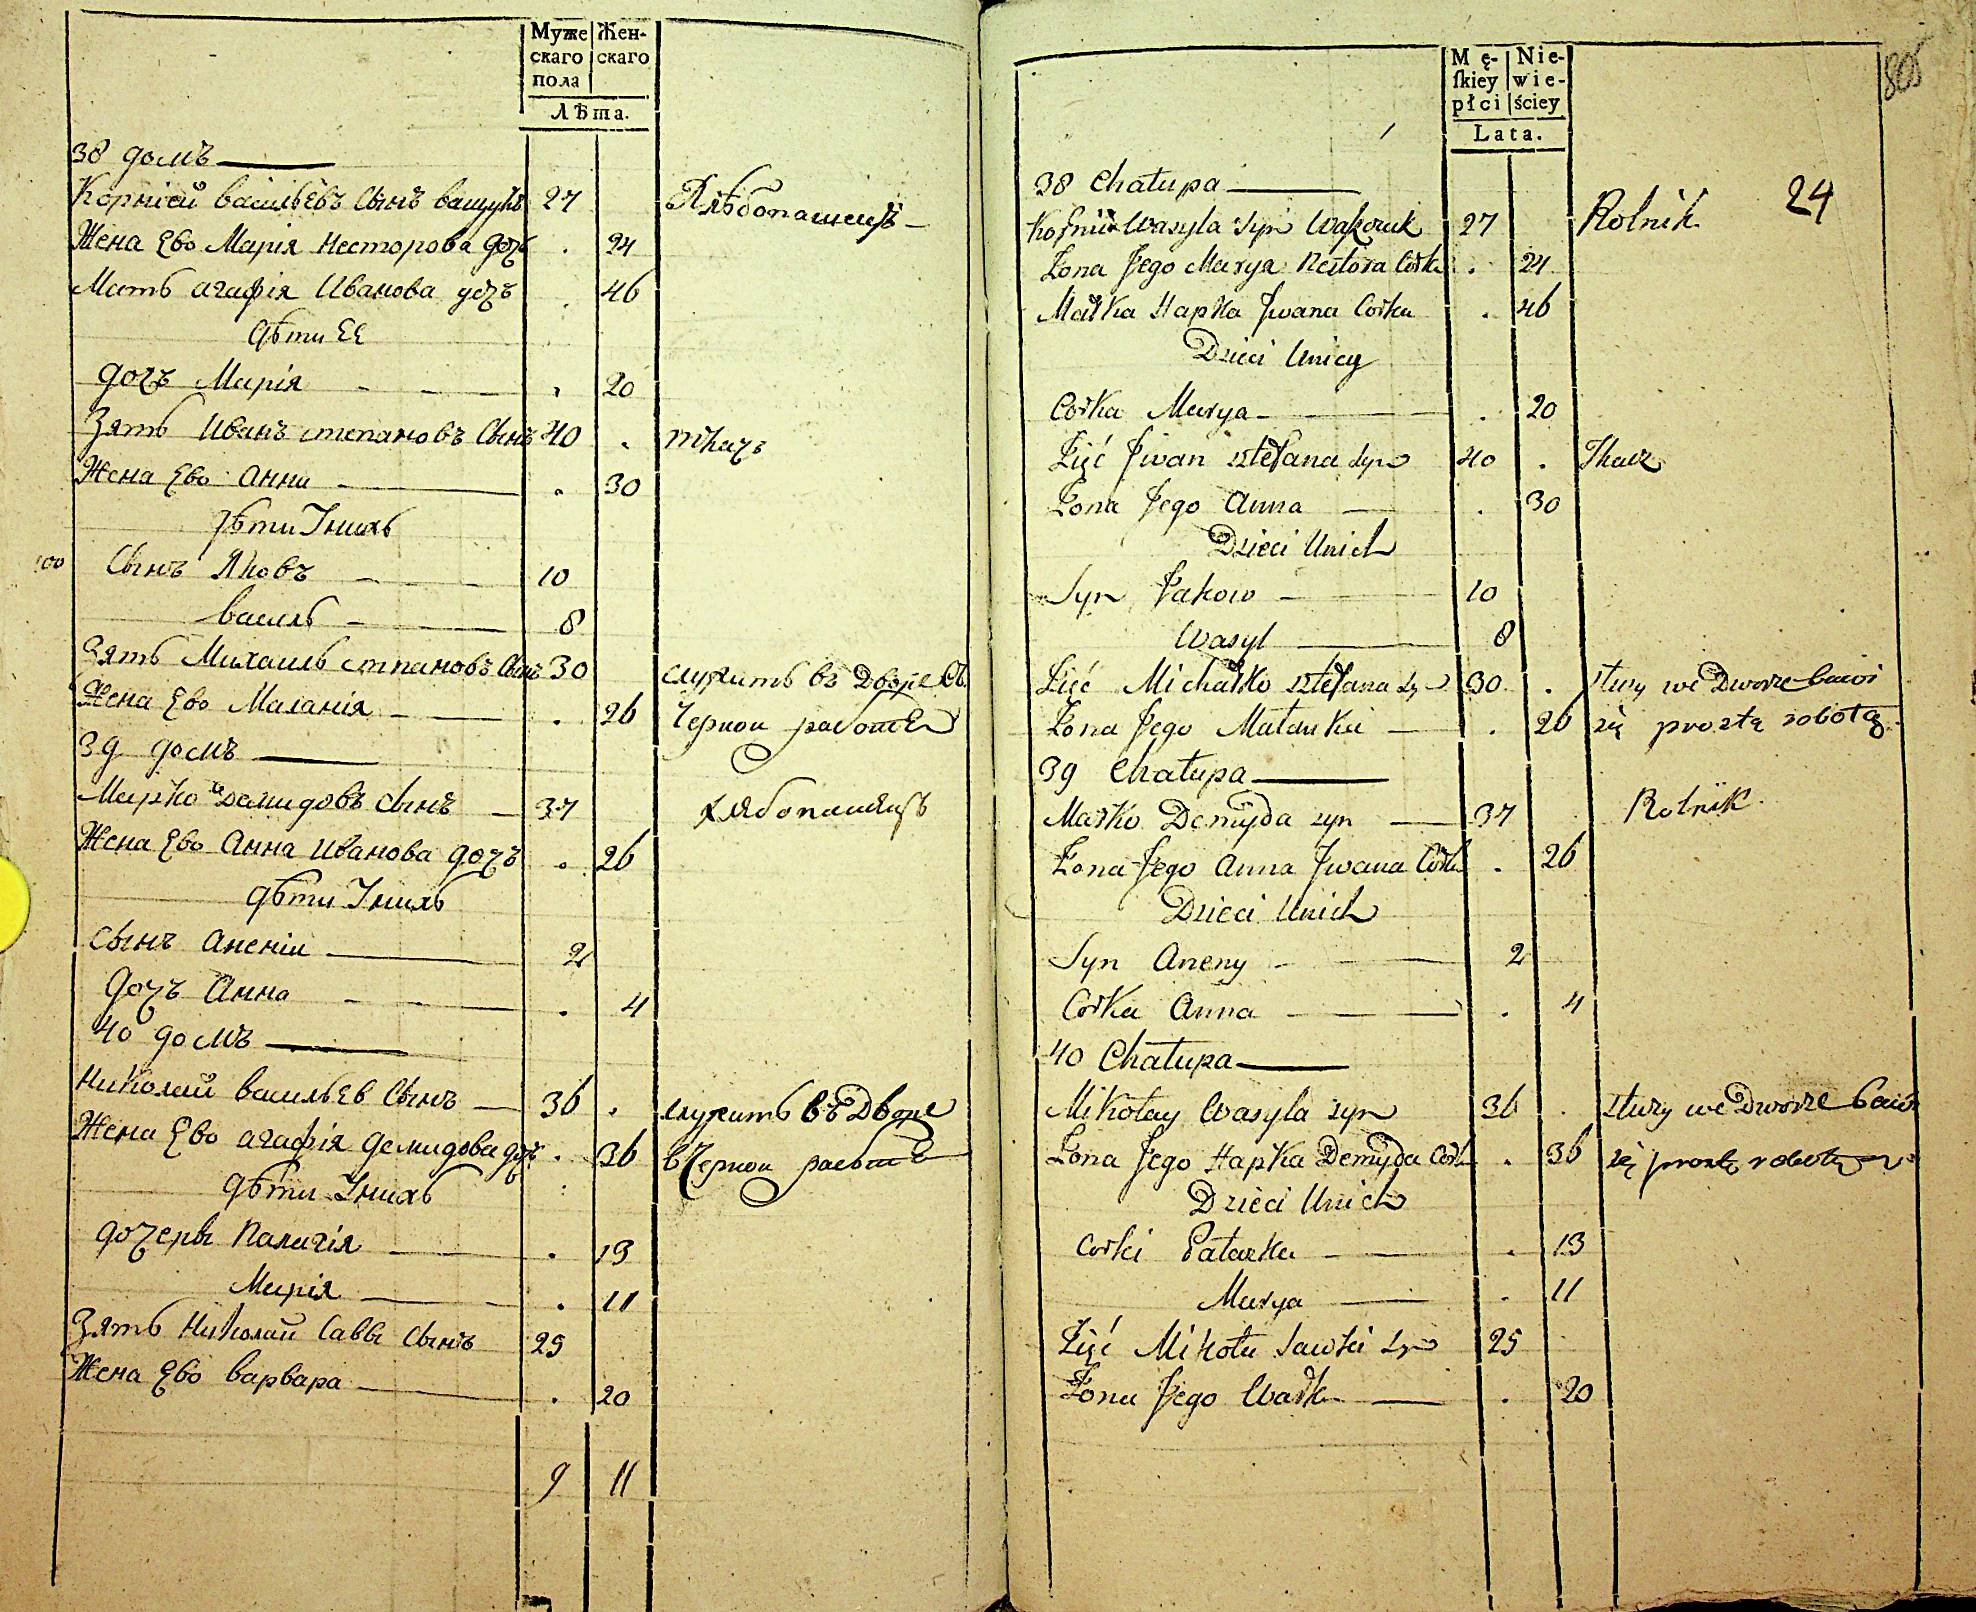 Муже Жен-
скаго скаго
пола
Лѣта.
38 домъ
Корнѣй васильевъ сынъ 27 Хлѣбопашецъ
Жена Ево Марія Несторова дочъ . 24
Мать агафія Иванова дочъ . 46
дѣти ЕЕ
дочъ Марія . 20
Зять Иванъ степановъ сынъ 40 . ткачъ
Жена Ево Анна . 30
дѣти Їнихъ
100 Сынъ Яковъ 10
василь 8
Зять Михаилъ степановъ сынъ 30 служитъ въ Дворе въ
Жена Ево Маланія . 26 Черной работе
39 домъ
Марко Демидовъ сынъ 37 хлѣбопашецъ
Жена Ево Анна Иванова дочъ . 26
дѣти Їнихъ
сынъ Ананіи 2
дочъ Анна . 4
40 домъ
Николай васильев Сынъ 36 . служитъ въ Дворе
Жена Ево агафія демидова дочъ . 36 в Черной работе
дѣти Їнихъ
дочеры Палагія . 13
Марія . 11
Зять Николай Саввы Сынъ 25
Жена Ево варвара . 20
9 11
805
Mę- Nie-
ſkiey wie-
płci ściey
Lata.
38 Chałupa Rolnik 24
Kornii Wasyla Syn 27
Żona Jego Marya Nestora Corka . 24
Matka Hapka Jwana Corka . 46
Dzieci Unicy
Corka Marya . 20
Zięć Jwan Stefana Syn 40 . Tkacz
Żona Jego Anna . 30
Dzieci Unich
Syn Jakow 10
Wasyl 8
Zięć Michałko Stefana Syn 30 . służy we Dworze bawi
Żona Jego Małanka . 26 się prostą robotą
39 Chałupa
Marko Demyda syn 37 Rolnik
Żona Jego Anna Jwana Corka . 26
Dzieci Unich
Syn Aneny 2
Corka Anna . 4
40 Chałupa
Mikołay Wasyla syn 36 . służy we Dworze bawi
Żona Jego Hapka Demyda Corka . 36 się prostą robotą
Dzieci Unich
Corki Pałazka . 13
Marya . 11
Zięć Mikoła Sawki Syn 25
Żona Jego Warka . 20